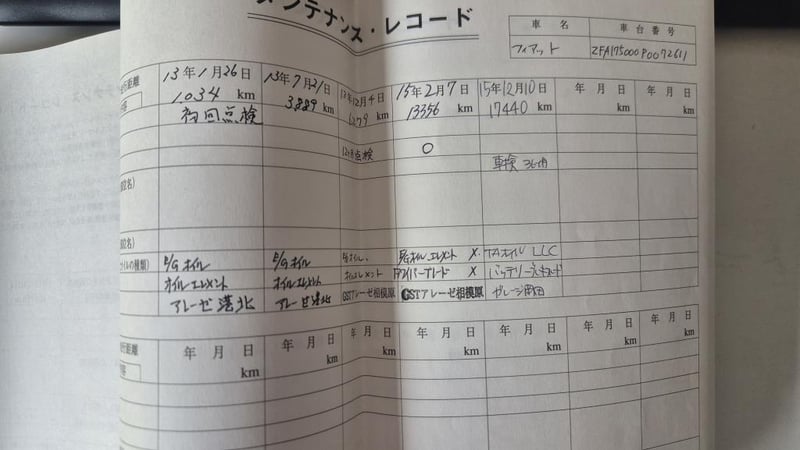 メンテナンス・レコード
車 名 車 台 番 号
フィアット ZFA175000P0072611
行距離 13年1月26日 13年7月21日 12月4日 15年2月7日 15年12月10日 年 月 日 年 月 日
1,034 km 3,889 km km 13356 km 17440 km km km
初回点検
12ヶ月点検 ○
車検
イルの種類) E/Gオイル E/Gオイル E/Gオイル E/Gオイル エレメント ×
オイルエレメント オイルエレメント オイルエレメント ワイパーブレード ×
アレーゼ港北 アレーゼ港北 GSTアレーゼ相模原 GSTアレーゼ相模原
行距離 年 月 日 年 月 日 年 月 日 年 月 日 年 月 日 年 月 日 年 月 日
km km km km km km km